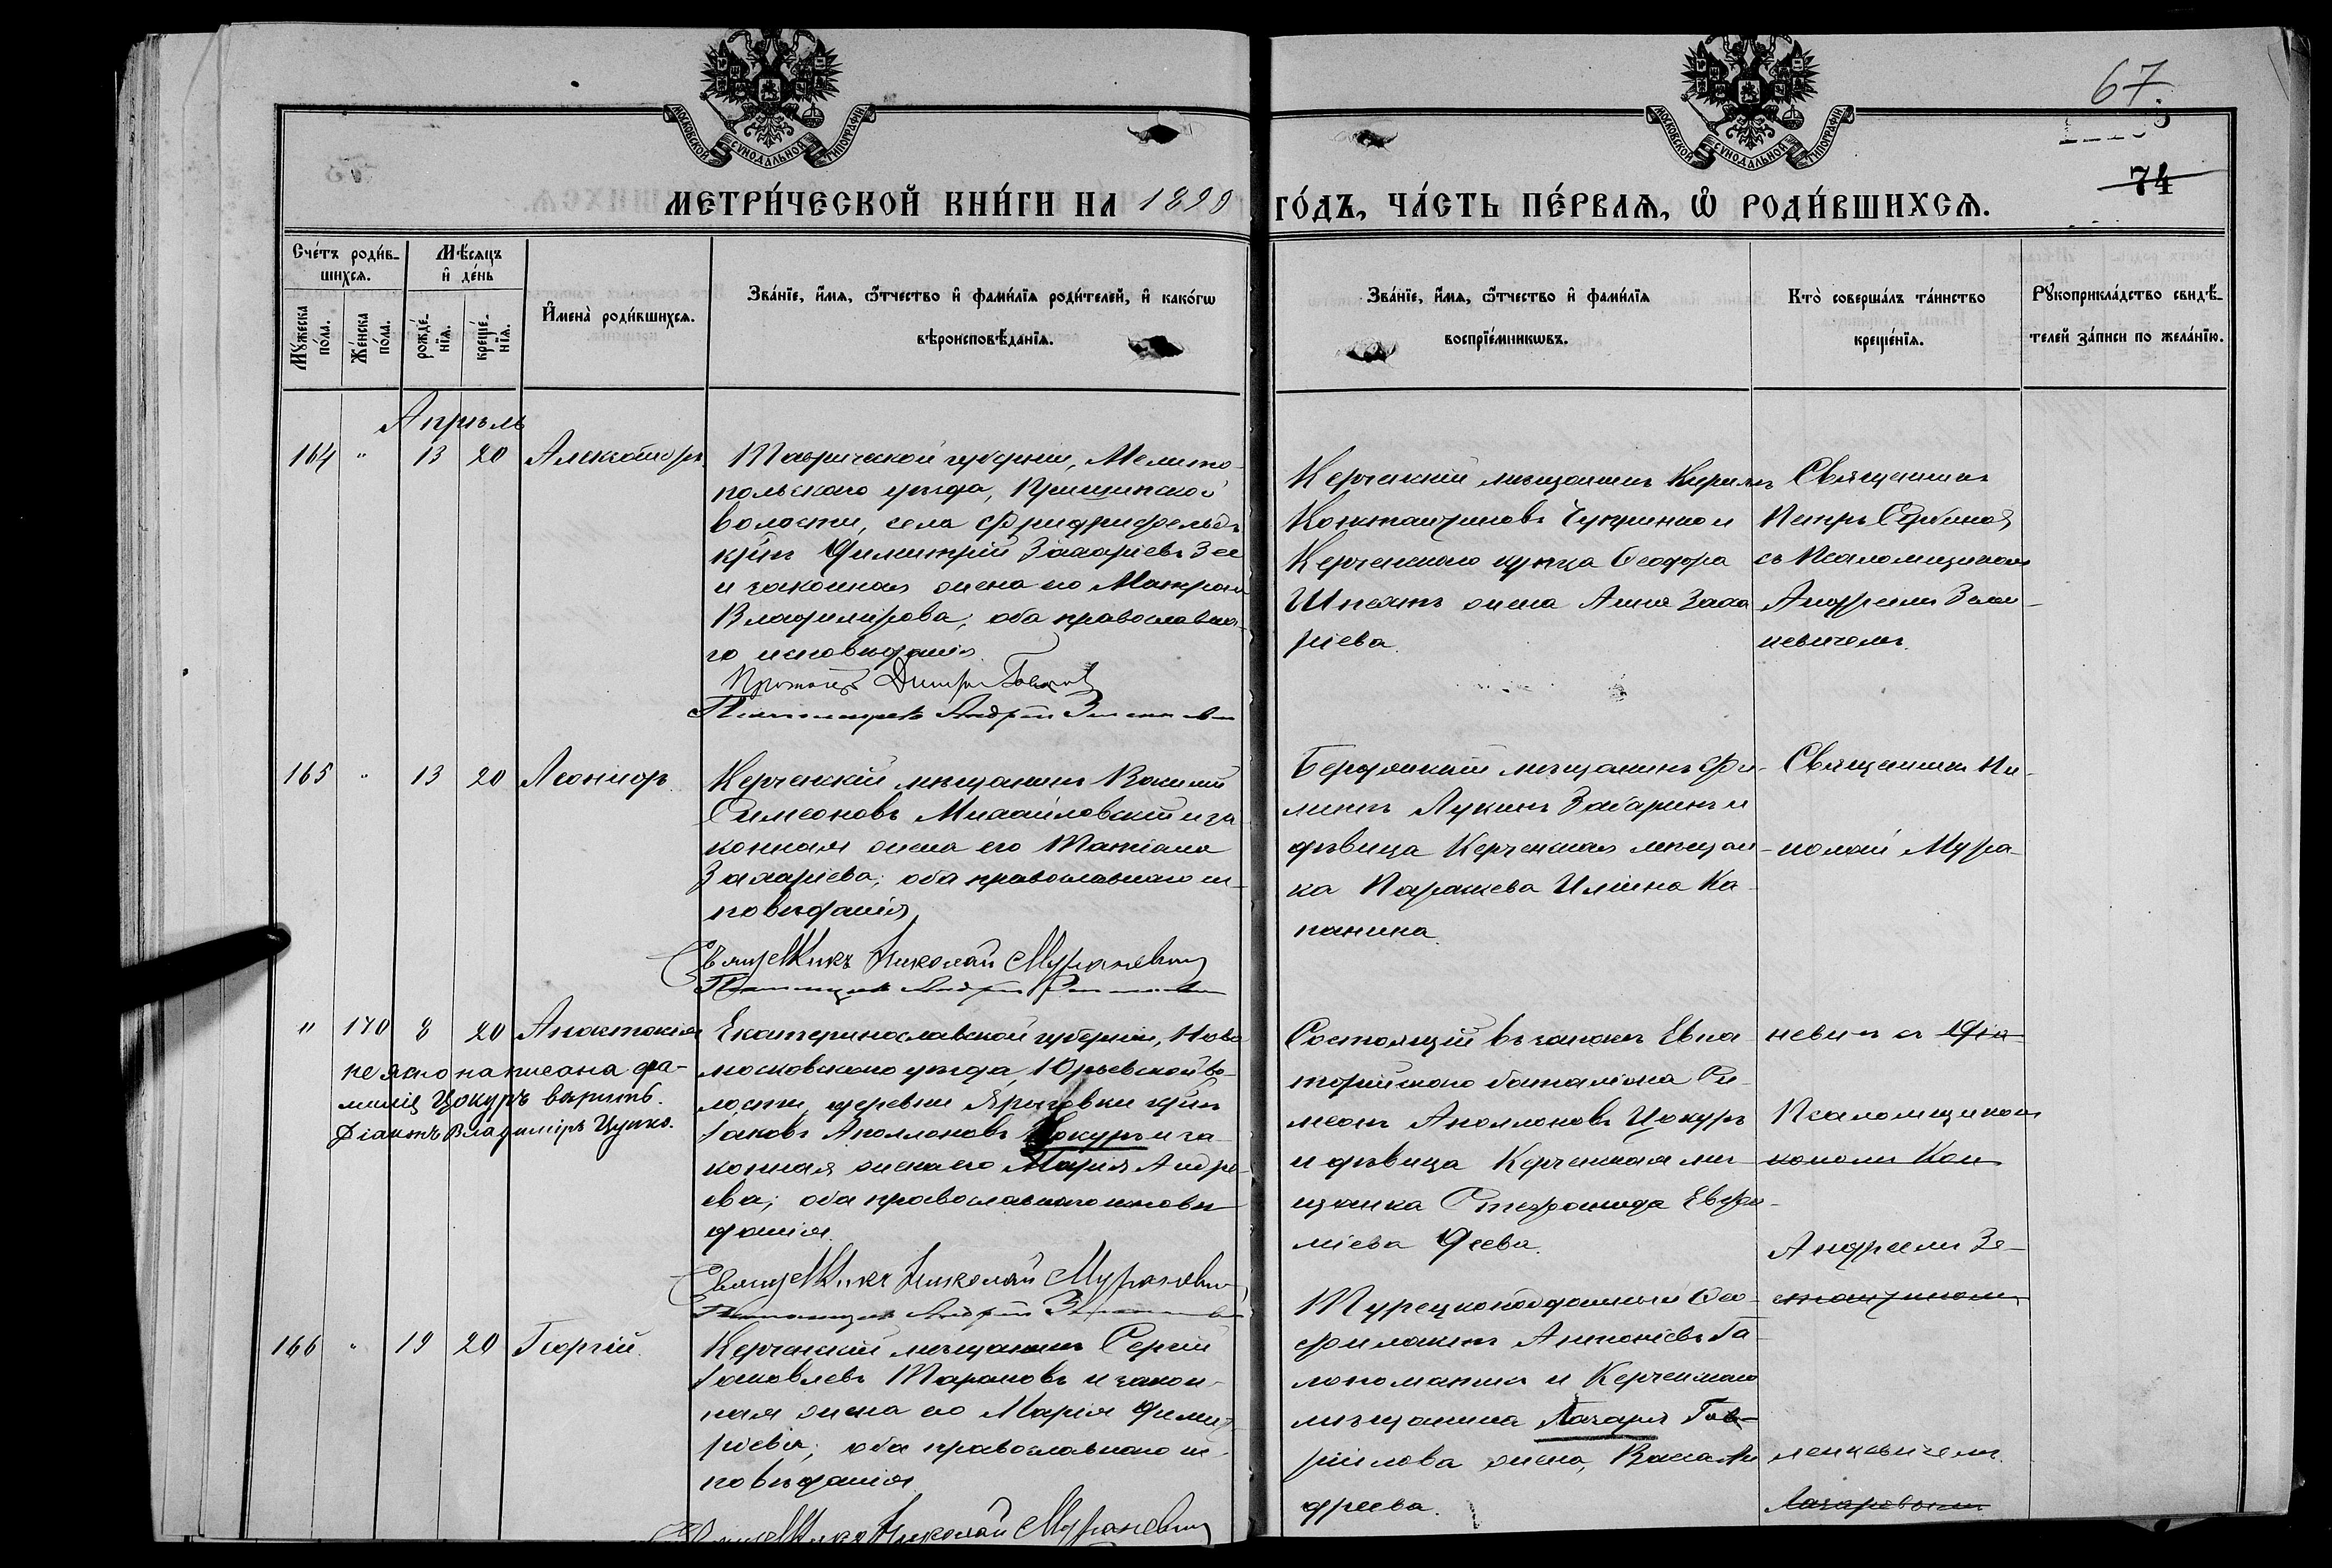 67.
74
МОСКОВСКОЙ СѴНОДАЛЬНОЙ ТИПОГРАФІИ
МОСКОВСКОЙ СѴНОДАЛЬНОЙ ТИПОГРАФІИ
МЕТРИ́ЧЕСКОЙ КНИ́ГИ НА 1890 ГО́ДЪ, ЧА́СТЬ ПЕ́РВАѦ, Ѡ҆ РОДИ́ВШИХСѦ.
Сче́тъ роди́в-
шихсѧ.
Мꙋ́жеска по́ла.
Же́нска по́ла.
Мѣ́сѧцъ
и҆ де́нь
рожде́-
нїѧ.
креще́-
нїѧ.
И҆мена̀ роди́вшихсѧ.
Зва́нїе, и҆́мѧ, ѻ҆́тчество и҆ фами́лїѧ роди́телей, и҆ како́гѡ
вѣроисповѣ́данїѧ.
Зва́нїе, и҆́мѧ, ѻ҆́тчество и҆ фами́лїѧ
воспрїе́мникѡвъ.
Кто̀ соверша́лъ та́инство
креще́нїѧ.
Рꙋкоприкла́дство свидѣ́-
телей за́писи по жела́нїю.
Апрѣль
164 " 13 20 Александръ.
Таврической губерніи, Мелито-
польскаго уѣзда, Пришинской
волости, села Фридрифельдъ
кр͠нъ Димитрій Захаріевъ Зее
и законная жена его Матрона
Владимірова; оба православна-
го исповѣданія.
Протоіер. Димитр
Псаломщикъ Андрей
Керченскій мѣщанинъ Кириллъ
Константиновъ Чупринко и
Керченскаго купца Ѳеодора
Шпехтъ жена Анна Заха
ріева.
Священникъ
Петръ Сербиновъ
съ Псаломщикомъ
Андреемъ Зели-
кевичемъ.
165 " 13 20 Леонидъ.
Керченскій мѣщанинъ Василій
Симеоновъ Михайловскій и за-
конная жена его Татіана
Захаріева; оба православнаго ис-
повѣданія.
Священникъ Николай Мураневичъ
Псаломщикъ Андрей
Бердянскій мѣщанинъ Фи-
липпъ Лукинъ Забаринъ и
дѣвица Керченская мѣщан-
ка Параскева Иліина Ка-
панина.
Священникъ Ни-
колай Мура-
" 170 8 20 Анастасія
не ясно написана фа-
милія Цокуръ вѣрить.
Діаконъ Владиміръ Цупко.
Екатеринославской губерніи, Ново
московскаго уѣзда, Юрьевской во-
лости, деревни кр͠нъ
Іаковъ Аполлоновъ Цокуръ и за-
конная жена его Марія Андре-
ева; оба православнаго исповѣ-
данія.
Священникъ Николай Мураневичъ
Псаломщикъ Андрей
Состоящій въ запасѣ Евпа-
торійскаго баталіона Си-
меонъ Аполлоновъ Цокуръ
и дѣвица Керченская мѣ-
щанка Стефанида Евфи-
міева Деева.
невичъ съ Діа-
Псаломщикомъ
кономъ Кон-
Андреемъ Зе-
стантиномъ
166 " 19 20 Георгій.
Керченскій мѣщанинъ Сергій
Іаковлевъ Тарановъ и закон-
ная жена его Марія Димит
ріева; оба православнаго ис-
повѣданія.
Священникъ Николай Мураневичъ
Турецкоподданный Ѳео-
филактъ Антоніевъ Га-
лопоманли и Керченскаго
мѣщанина Лазаря Гав-
ріилова жена, Васса Ан
дреева.
ленкевичемъ.
Лазаревымъ